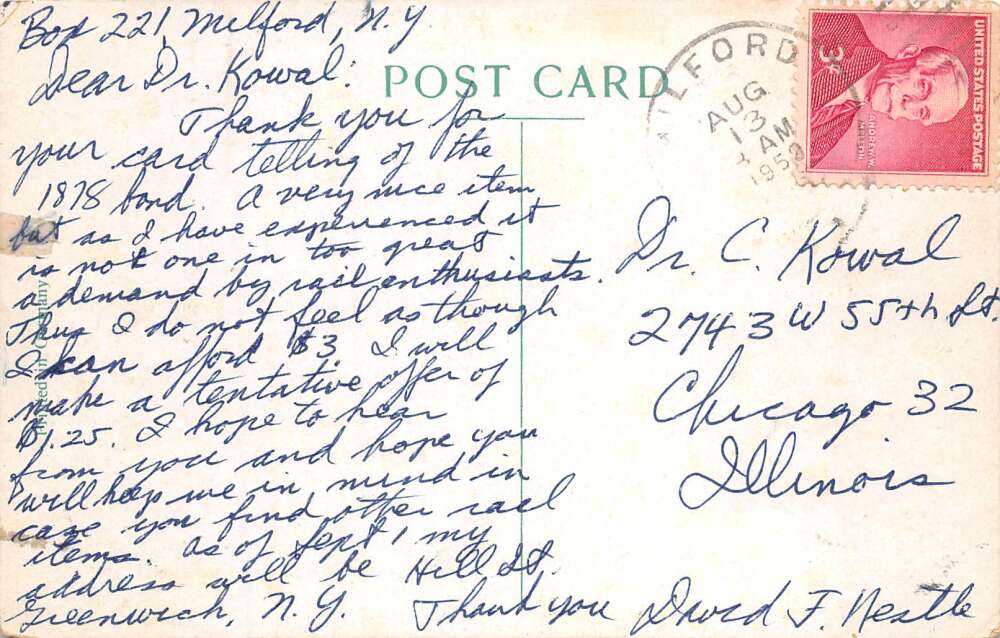 Box 221, Milford, N.Y.
Dear Dr. Kowal:
Thank you for
your card telling of the
1878 bond. A very nice item
but as I have experienced it
is not one in too great
a demand by rail enthusiasts.
Thus I do not feel as though
I can afford $3. I will
make a tentative offer of
$1.25. I hope to hear
from you and hope you
will keep me in mind in
case you find other rail
items. As of Sept 1 my
address will be Hill St.
Greenwich, N.Y. Thank you David F. Nestle
POST CARD
Printed in Germany
MILFORD
AUG
13
AM
195
UNITED STATES POSTAGE
3¢
ANDREW W.
MELLON
Dr. C. Kowal
2743 W 55th St.
Chicago 32
Illinois